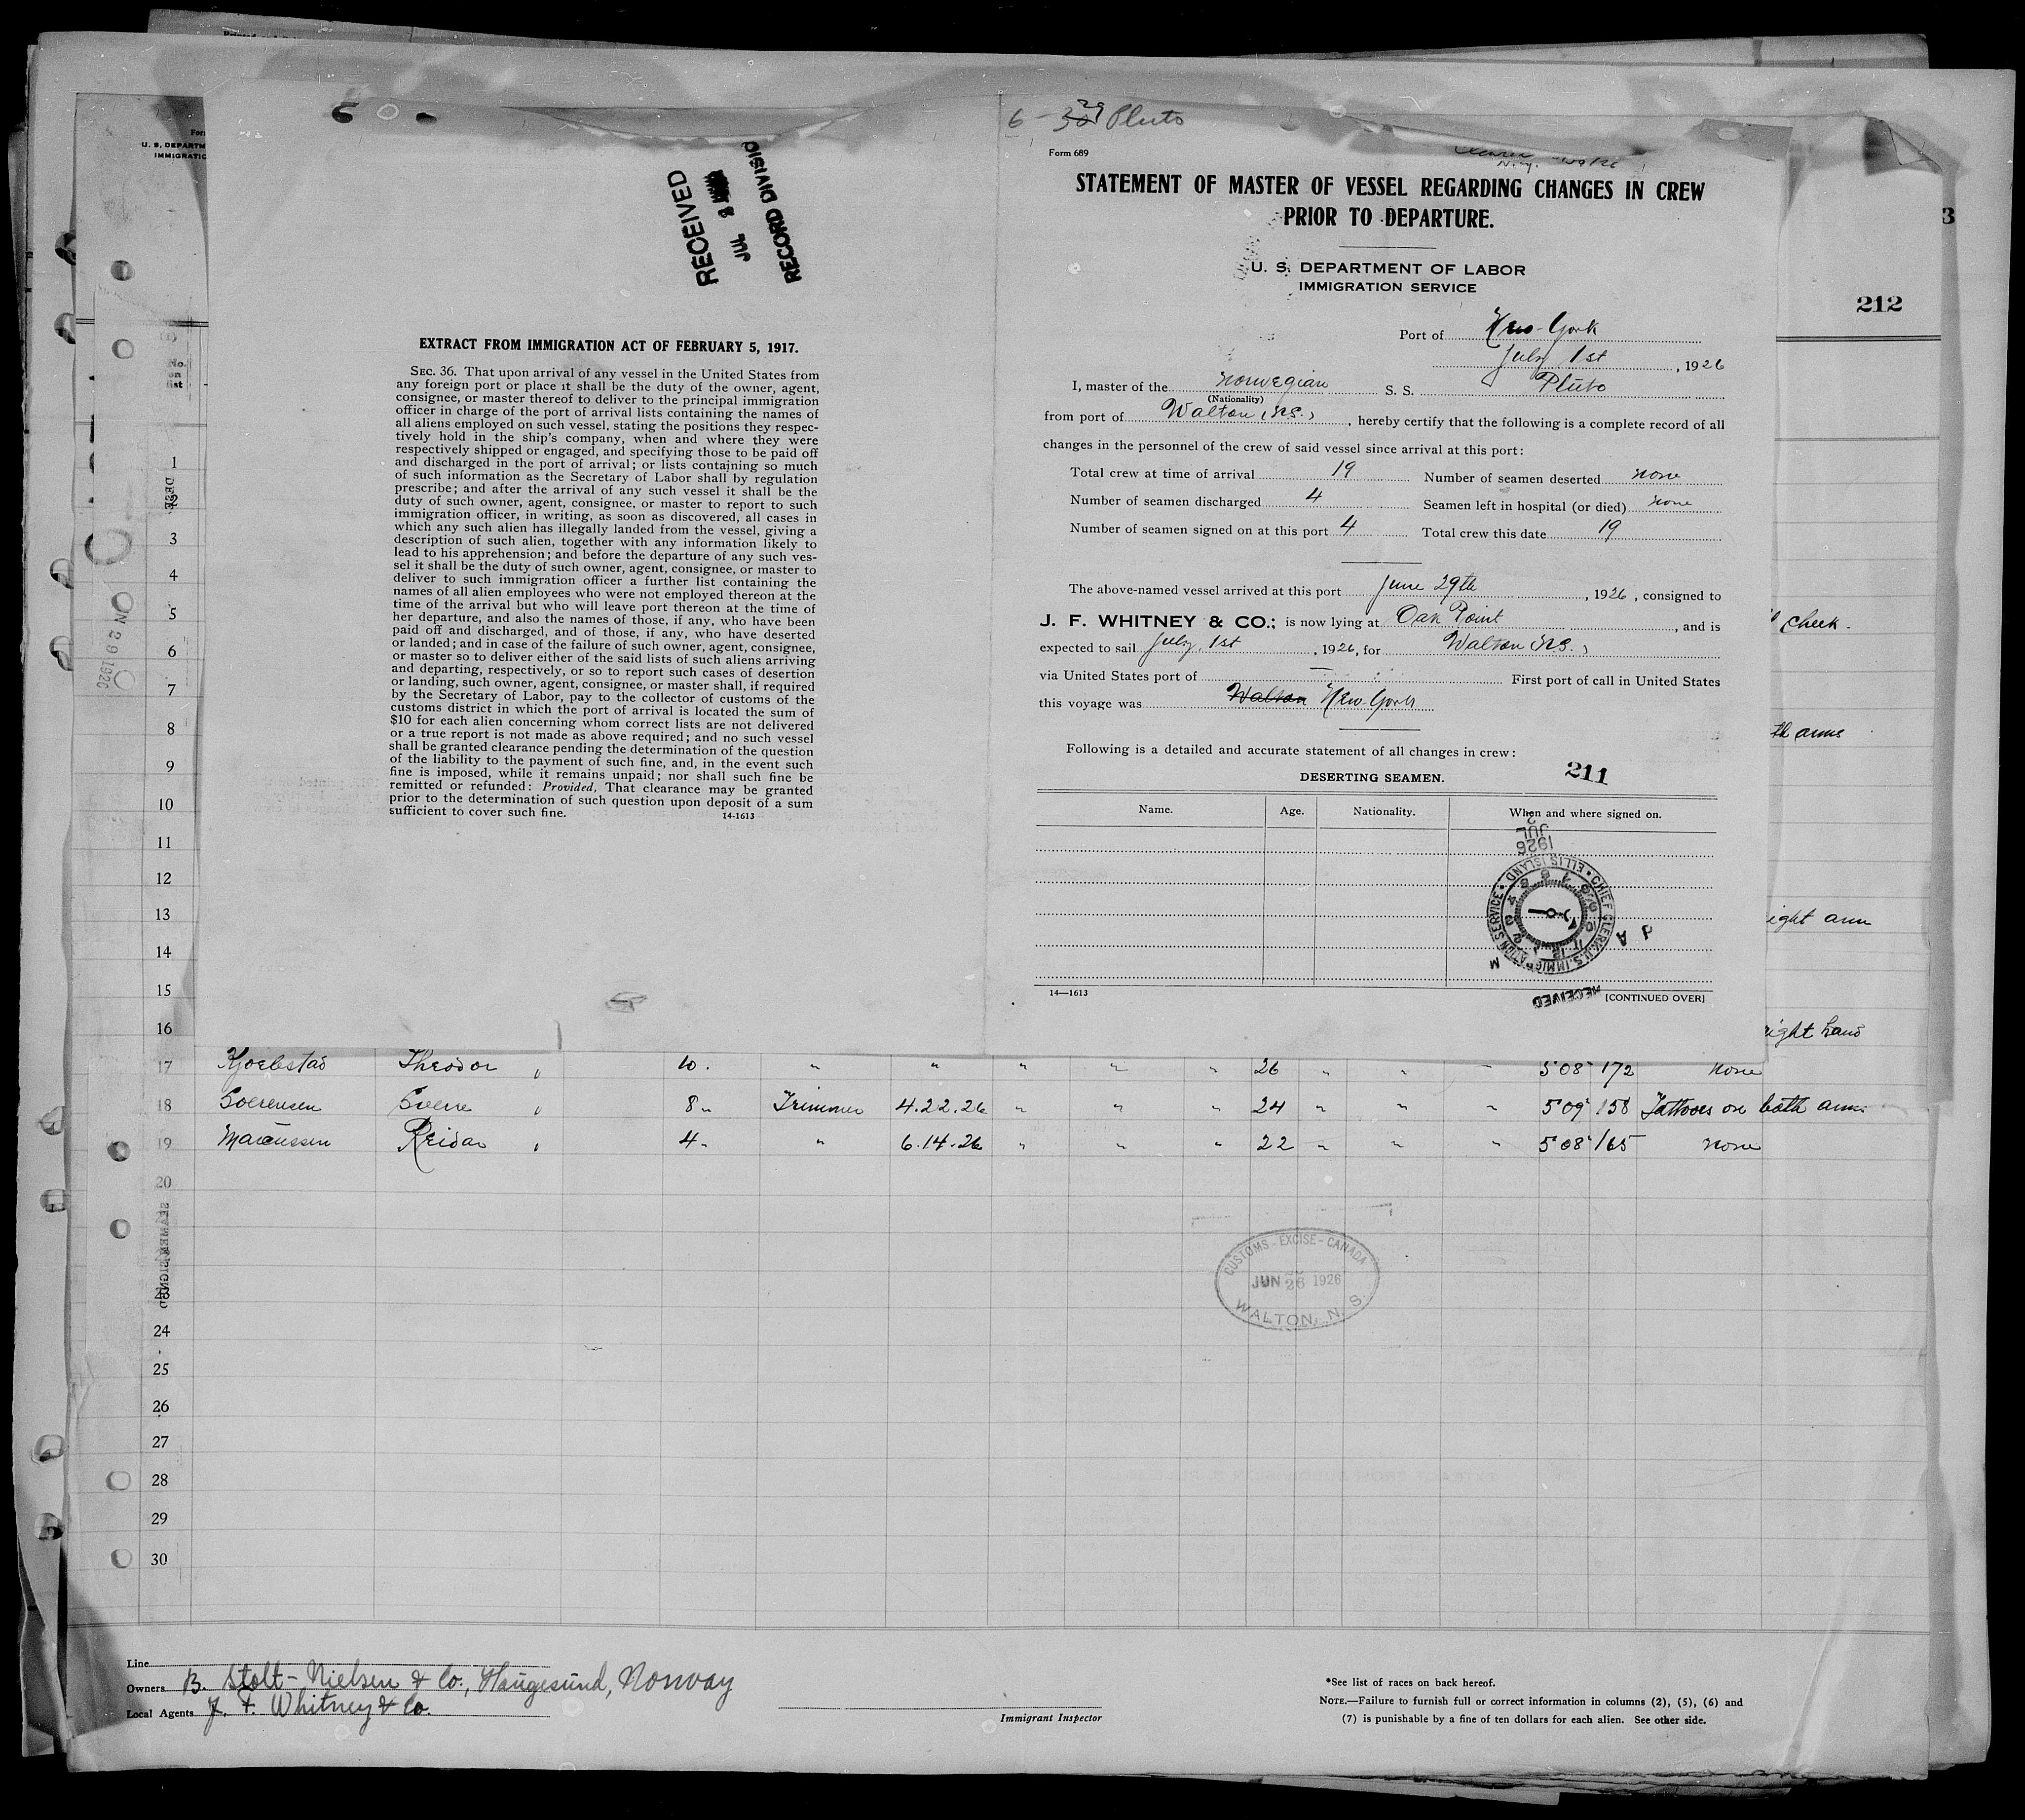 RECEIVED
JUL
RECORD DIVISIO
EXTRACT FROM IMMIGRATION ACT OF FEBRUARY 5, 1917.
SEC. 36. That upon arrival of any vessel in the United States from
any foreign port or place it shall be the duty of the owner, agent,
consignee, or master thereof to deliver to the principal immigration
officer in charge of the port of arrival lists containing the names of
all aliens employed on such vessel, stating the positions they respec-
tively hold in the ship's company, when and where they were
respectively shipped or engaged, and specifying those to be paid off
and discharged in the port of arrival; or lists containing so much
of such information as the Secretary of Labor shall by regulation
prescribe; and after the arrival of any such vessel it shall be the
duty of such owner, agent, consignee, or master to report to such
immigration officer, in writing, as soon as discovered, all cases in
which any such alien has illegally landed from the vessel, giving a
description of such alien, together with any information likely to
lead to his apprehension; and before the departure of any such ves-
sel it shall be the duty of such owner, agent, consignee, or master to
deliver to such immigration officer a further list containing the
names of all alien employees who were not employed thereon at the
time of the arrival but who will leave port thereon at the time of
her departure, and also the names of those, if any, who have been
paid off and discharged, and of those, if any, who have deserted
or landed; and in case of the failure of such owner, agent, consignee,
or master so to deliver either of the said lists of such aliens arriving
and departing, respectively, or so to report such cases of desertion
or landing, such owner, agent, consignee, or master shall, if required
by the Secretary of Labor, pay to the collector of customs of the
customs district in which the port of arrival is located the sum of
$10 for each alien concerning whom correct lists are not delivered
or a true report is not made as above required; and no such vessel
shall be granted clearance pending the determination of the question
of the liability to the payment of such fine, and, in the event such
fine is imposed, while it remains unpaid; nor shall such fine be
remitted or refunded: Provided, That clearance may be granted
prior to the determination of such question upon deposit of a sum
sufficient to cover such fine. 14-1613
6 - 29 Pluto
Form 689
STATEMENT OF MASTER OF VESSEL REGARDING CHANGES IN CREW
PRIOR TO DEPARTURE.
U. S. DEPARTMENT OF LABOR
IMMIGRATION SERVICE
Port of New-York
July 1st, 1926
I, master of the Norwegian S. S. Pluto
(Nationality)
from port of Walton (NS.), hereby certify that the following is a complete record of all
changes in the personnel of the crew of said vessel since arrival at this port:
Total crew at time of arrival 19 Number of seamen deserted none
Number of seamen discharged 4 Seamen left in hospital (or died) none
Number of seamen signed on at this port 4 Total crew this date 19
The above-named vessel arrived at this port June 29th, 1926, consigned to
J. F. WHITNEY & CO.; is now lying at Oak Point, and is
expected to sail July, 1st, 1926, for Walton (NS.)
via United States port of — First port of call in United States
this voyage was Walton New-York
Following is a detailed and accurate statement of all changes in crew:
DESERTING SEAMEN. 211
Name. Age. Nationality. When and where signed on.
JUL 2
1926
CHIEF CLERK U.S. IMMIGRATION SERVICE ELLIS ISLAND
RECEIVED
14—1613 [CONTINUED OVER]
212
U. S. DEPARTM
IMMIGRATIO
No.
on
list
1
2
3
4
5 cheek.
6
7
8 th arms
9
10
11
12
13 ight arm
14
15
16 right hand
17 Kjoelstad Theodor " 10. " " " " " 26 " " " 5'08" 172 none
18 Soerensen Sverre " 8 " Trimmer 4.22.26 " " " 24 " " " 5'09" 158 Tattoos on both arms
19 Marcussen Reidar " 4 " " 6.14.26 " " " 22 " " " 5'08" 165 none
20
24
25
26
27
28
29
30
CUSTOMS - EXCISE - CANADA
JUN 26 1926
WALTON, N. S.
Line
Owners B. Stolt-Nielsen & Co., Haugesund, Norway
Local Agents J. F. Whitney & Co.
Immigrant Inspector
*See list of races on back hereof.
NOTE.—Failure to furnish full or correct information in columns (2), (5), (6) and
(7) is punishable by a fine of ten dollars for each alien. See other side.